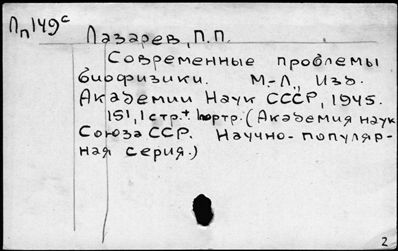 Лп149с
Лазарев, П.П.
Современные проблемы
биофизики. М.-Л., Изд.
Академии Наук СССР, 1945.
151, 1 стр. + портр. (Академия наук
Союза ССР. Научно-популяр-
ная серия.)
2